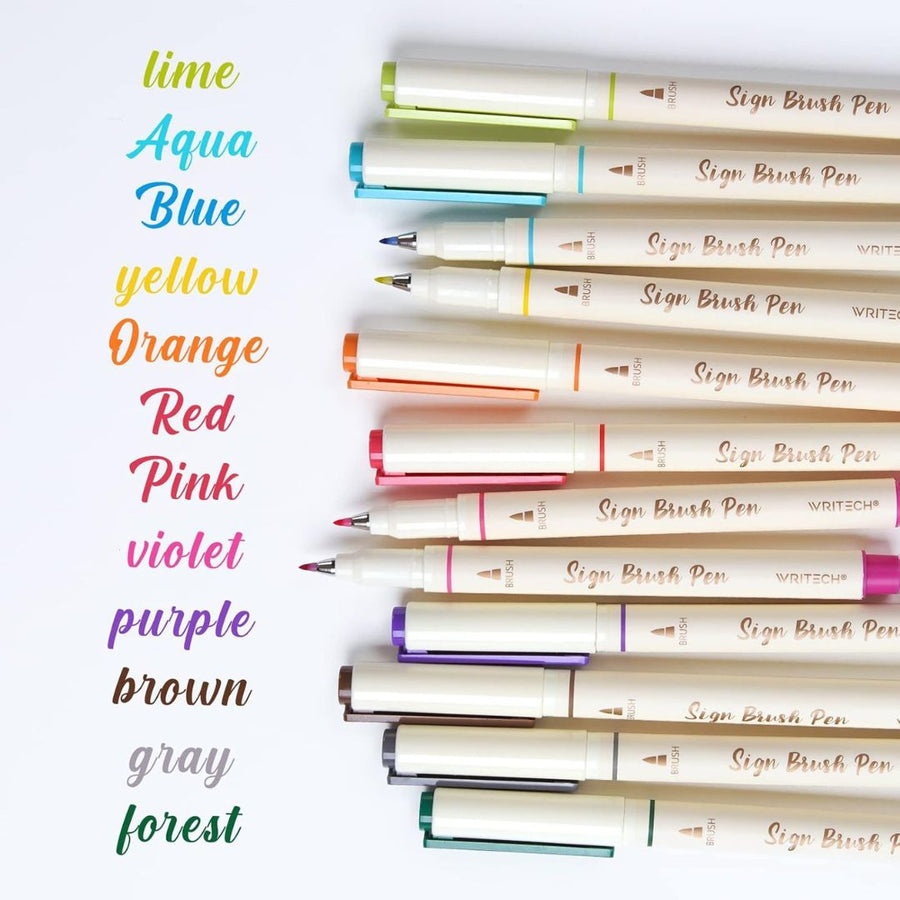 lime
Aqua
Blue
yellow
Orange
Red
Pink
violet
purple
brown
gray
forest
BRUSH Sign Brush Pen
BRUSH Sign Brush Pen
BRUSH Sign Brush Pen WRITECH
BRUSH Sign Brush Pen WRITEC
BRUSH Sign Brush Pen
BRUSH Sign Brush Pen
BRUSH Sign Brush Pen WRITECH®
BRUSH Sign Brush Pen WRITECH®
BRUSH Sign Brush Pen
BRUSH Sign Brush Pen
BRUSH Sign Brush Pen
BRUSH Sign Brush P